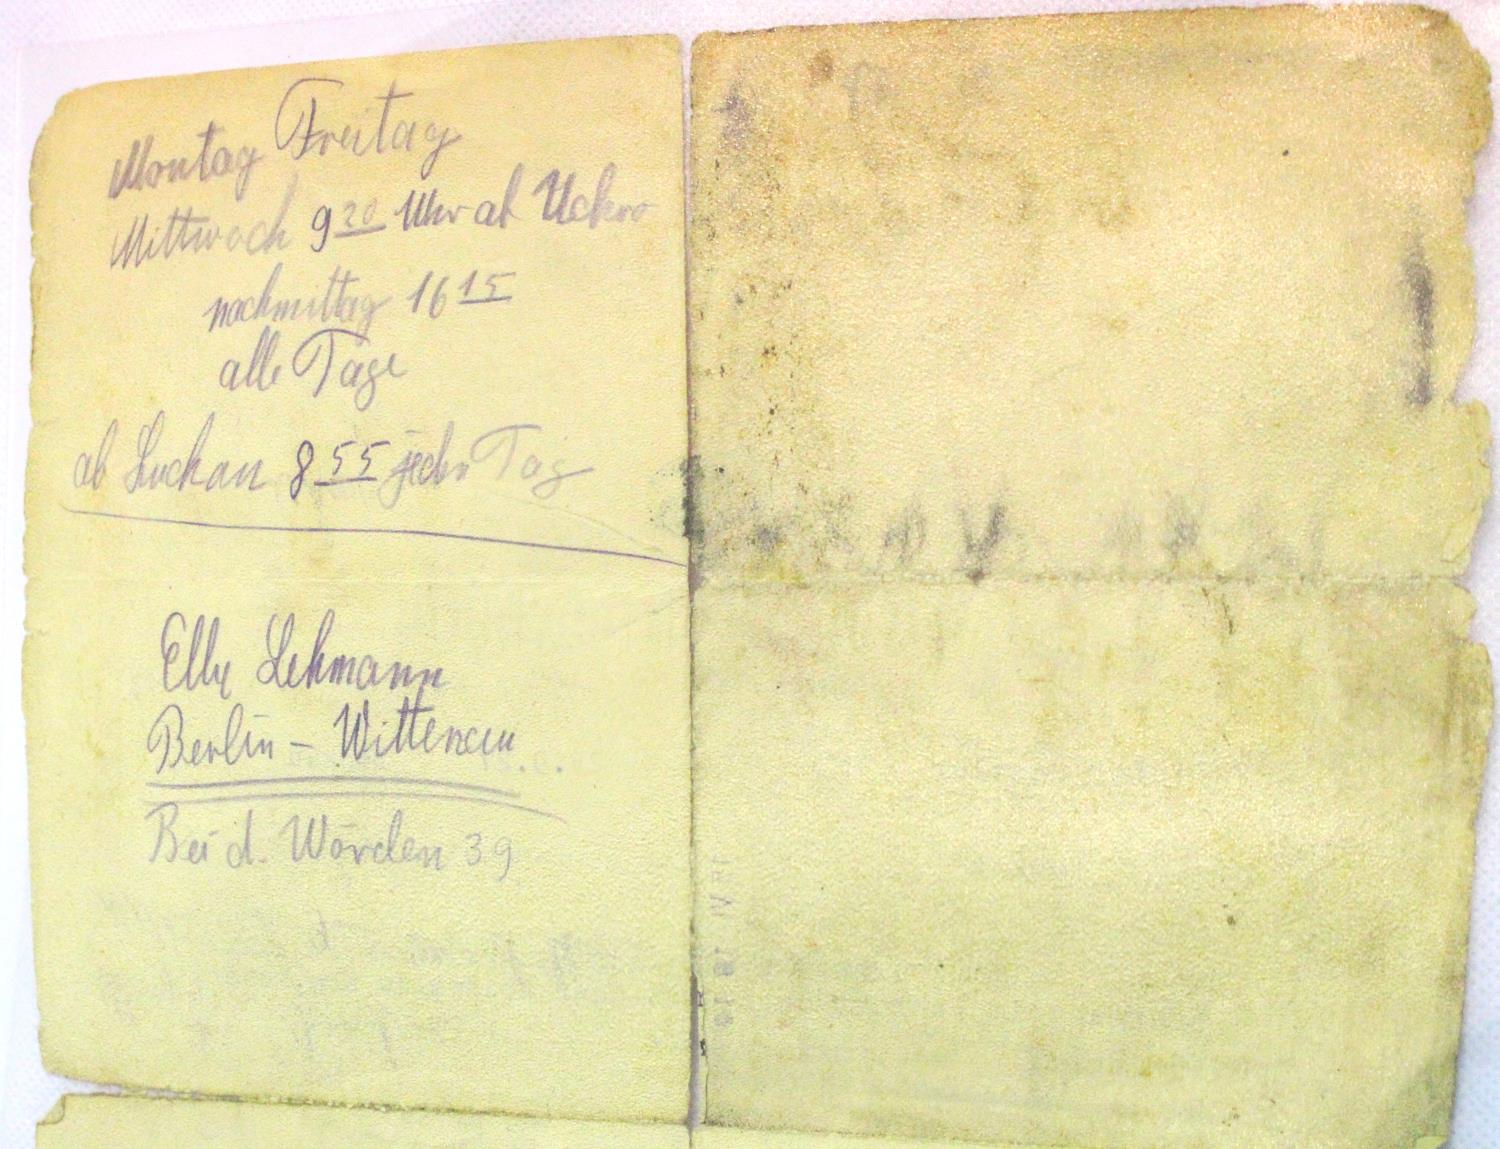 Montag Freitag
Mittwoch 9 20 Uhr ab Uckro
nachmittag 16 15
alle Tage
ab Luckau 8 55 jeden Tag
Elly Lehmann
Berlin – Wittenau
Bei d. Wörden 39